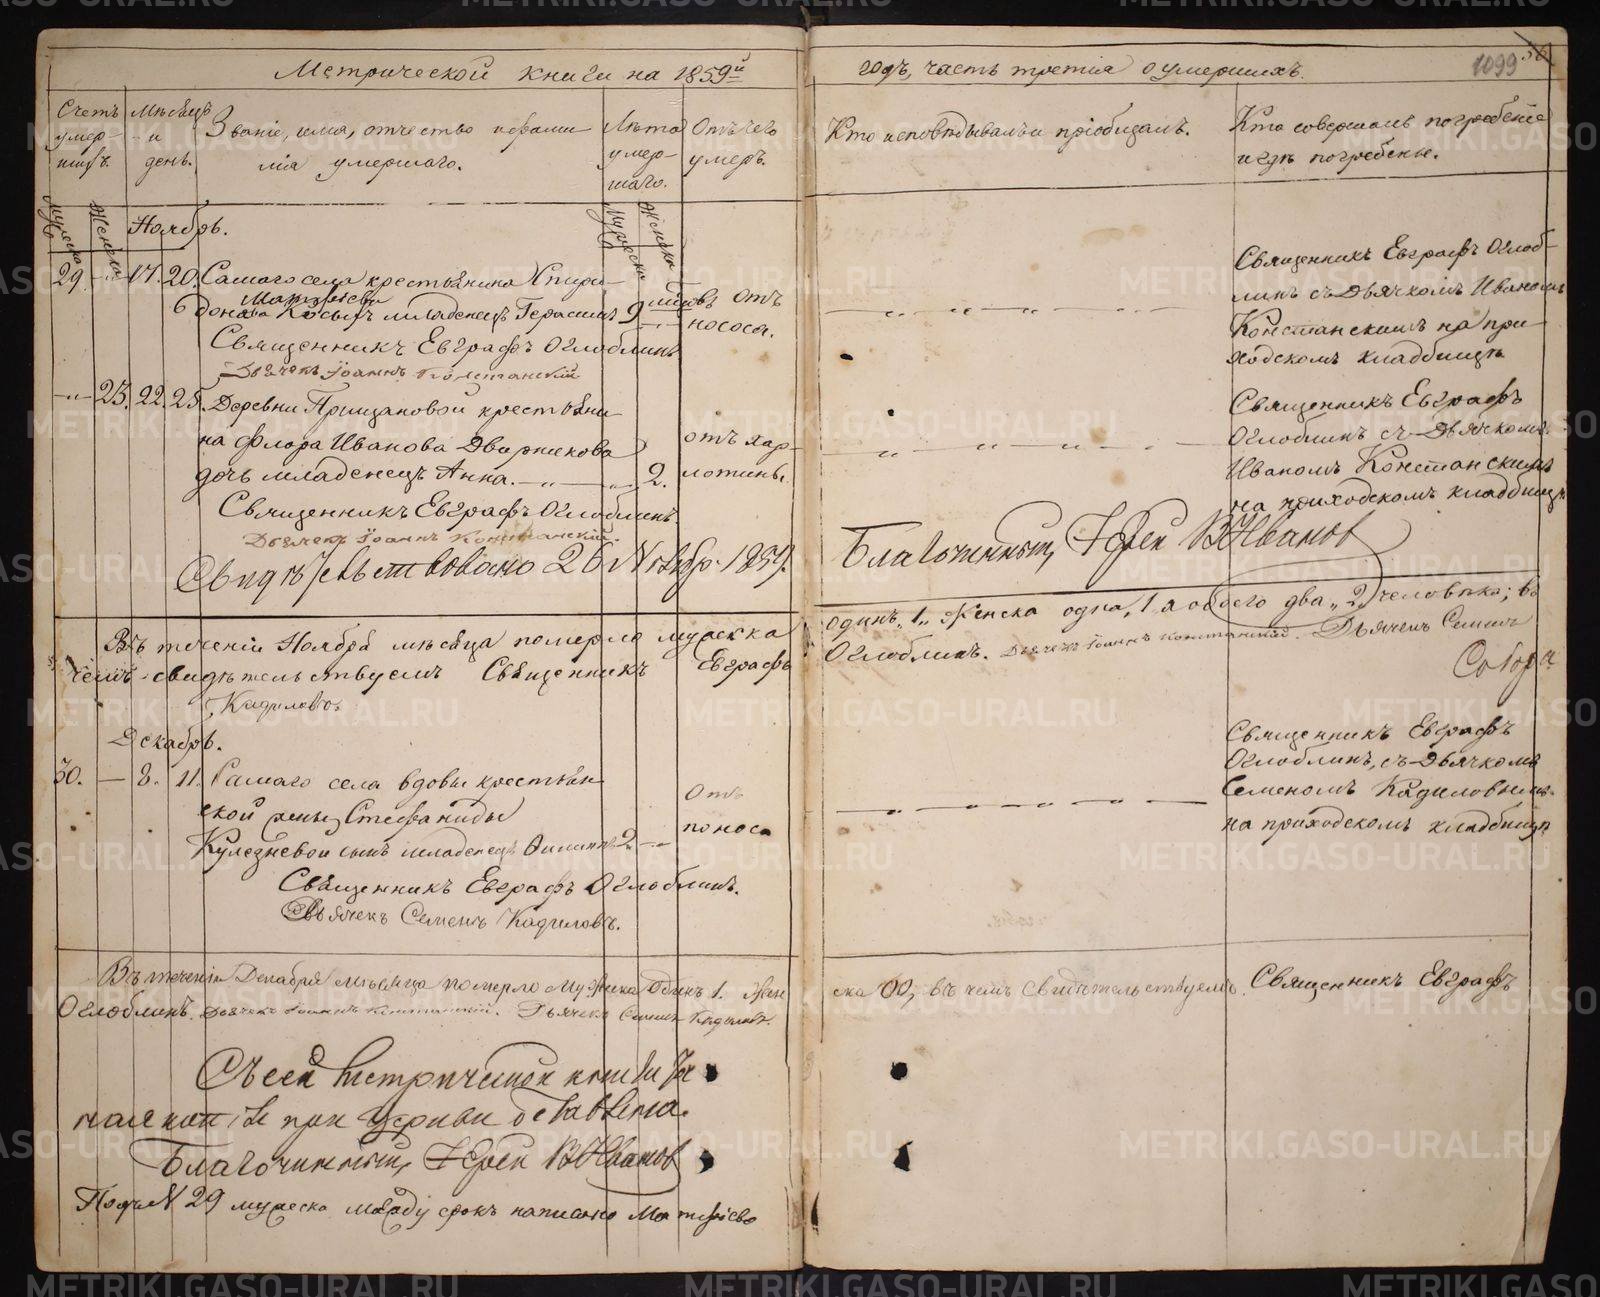 Метрической книги на 1859й
годъ, часть третія о умершихъ.
1099
Счетъ умер-шихъ.
Мѣсяцъ и день.
Званіе, имя, отчество и фами-
лія умершаго.
Лѣта умер-шаго.
Отъ чего умеръ.
Кто исповѣдывалъ и пріобщалъ.
Кто совершалъ погребеніе
и гдѣ погребены.
Мужеска
Женска
Ноябрь.
Мужеска
Женска
29. -"- 17. 20. Самаго села крестьянина Спири-
Матѳіева
6 донова Косыхъ младенецъ Герасимъ 9
мѣсяцовъ отъ
поноса.
Священникъ Евграфъ Оглоблинъ
Дьячекъ Іоаннъ Констанскій
Священникъ Евграфъ Оглоб-
линъ съ Дьячкомъ Иваномъ
Констанскимъ на при-
ходскомъ кладбищѣ
-"- 23. 22. 25. Деревни Прищановой крестьяни-
на Флора Иванова Дворникова
дочь младенецъ Анна. -"- -"- 2.
отъ хар-
лотины.
Священникъ Евграфъ Оглоблинъ.
Дьячекъ Іоаннъ Констанскій.
Священникъ Евграфъ
Оглоблинъ съ Дьячкомъ
Иваномъ Констанскимъ
на приходскомъ кладбищѣ
Свидѣтельствовано 26 Ноября 1859.
Благочинный, Іерей В Ивановъ
Въ теченіи Ноября мѣсяца померло мужеска
одинъ "1" Женска одна, 1 а обоего два "2" человѣка; въ
чемъ свидѣтельствуемъ Священникъ Евграфъ
Оглоблинъ. Дьячекъ Іоаннъ Констанскій. Дьячекъ Семенъ
Кадиловъ
Декабрь.
30. — 8. 11. Самаго села вдовы крестьян-
ской жены Стефаниды
Кулезневой сынъ младенецъ Филиппъ 2 -"-
Отъ
поноса
Священникъ Евграфъ Оглоблинъ.
Дьячекъ Семенъ Кадиловъ.
Священникъ Евграфъ
Оглоблинъ, съ Дьячкомъ
Семеномъ Кадиловымъ
на приходскомъ кладбищѣ
Въ теченіи Декабря мѣсяца померло Мужеска Одинъ 1. Жен
ска 00, въ чемъ свидѣтельствуемъ. Священникъ Евграфъ
Оглоблинъ. Дьячекъ Іоаннъ Констанскій. Дьячекъ Семенъ Кадиловъ.
Съ сей Метрической книги точ
ная копія при Церкви оставлена.
Благочинный, Іерей В Ивановъ
Подъ N 29 мужеска между срокъ написано Матѳіева
METRIKI.GASO-URAL.RU